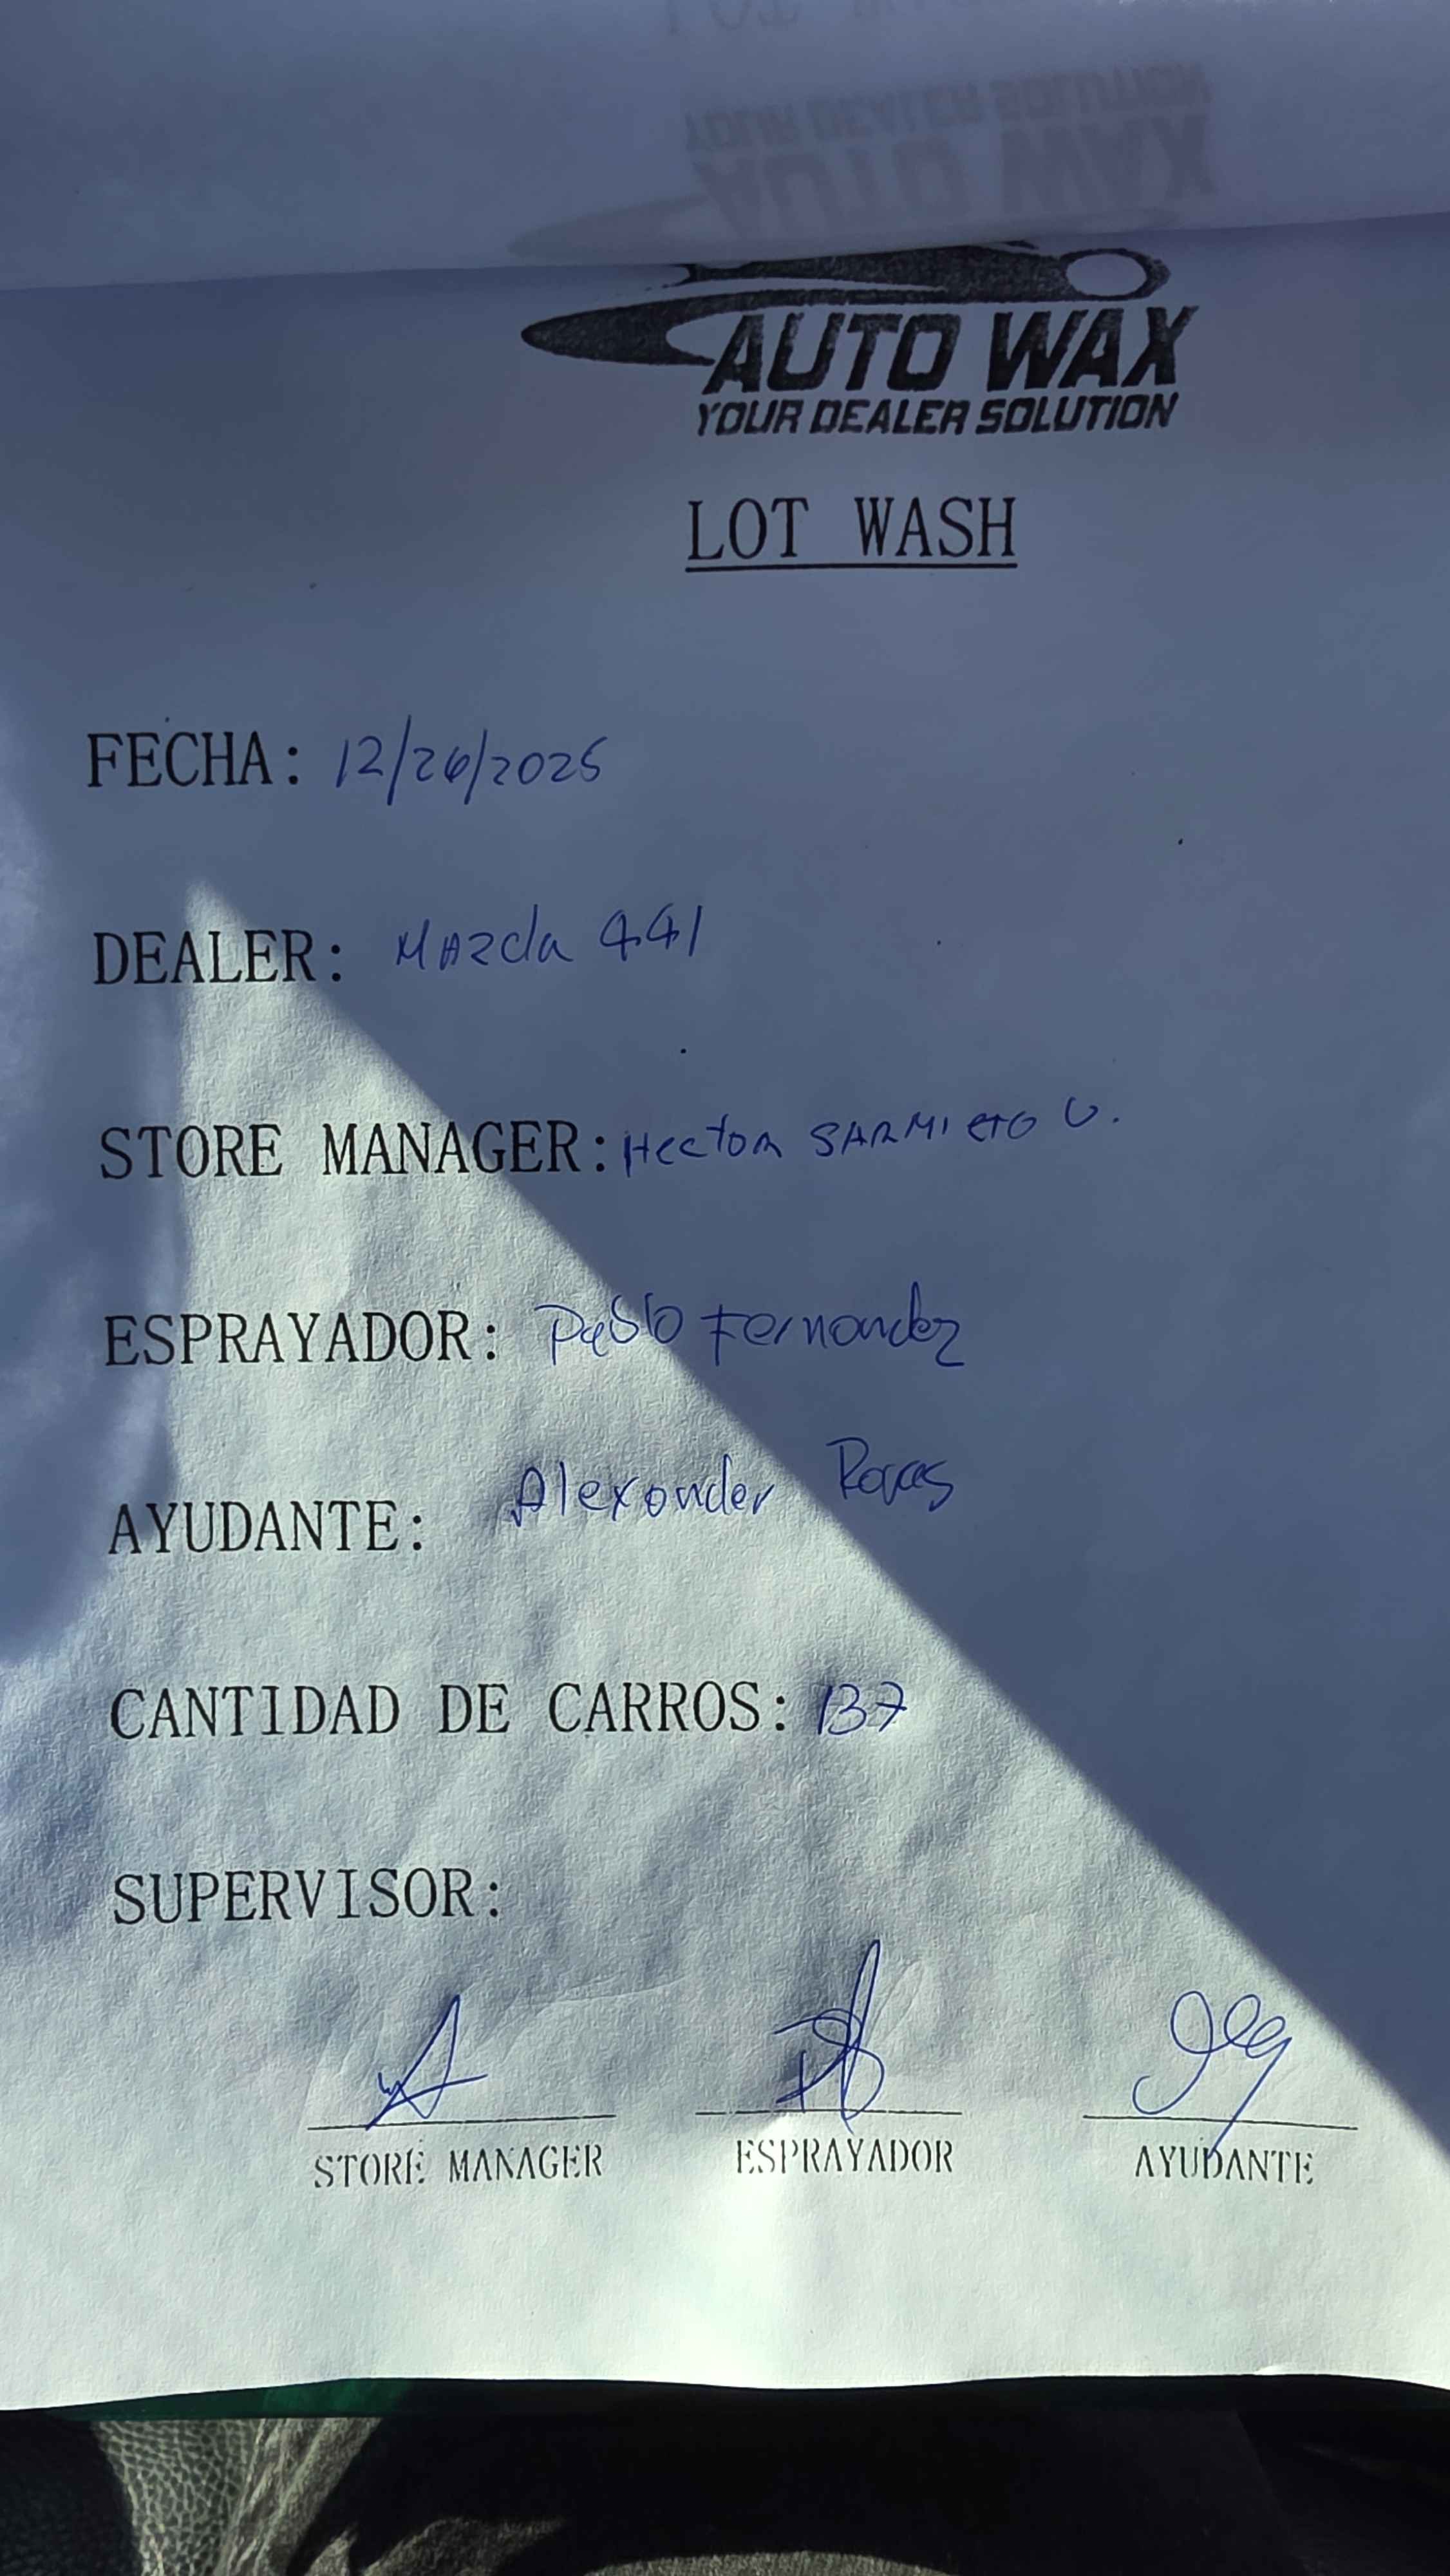 AUTO WAX
YOUR DEALER SOLUTION
LOT WASH
FECHA: 12/26/2025
DEALER: Mazda 441
STORE MANAGER: Hector SARMIETO U.
ESPRAYADOR: Pablo Fernandez
AYUDANTE: Alexander
CANTIDAD DE CARROS: 137
SUPERVISOR:
STORE MANAGER ESPRAYADOR AYUDANTE